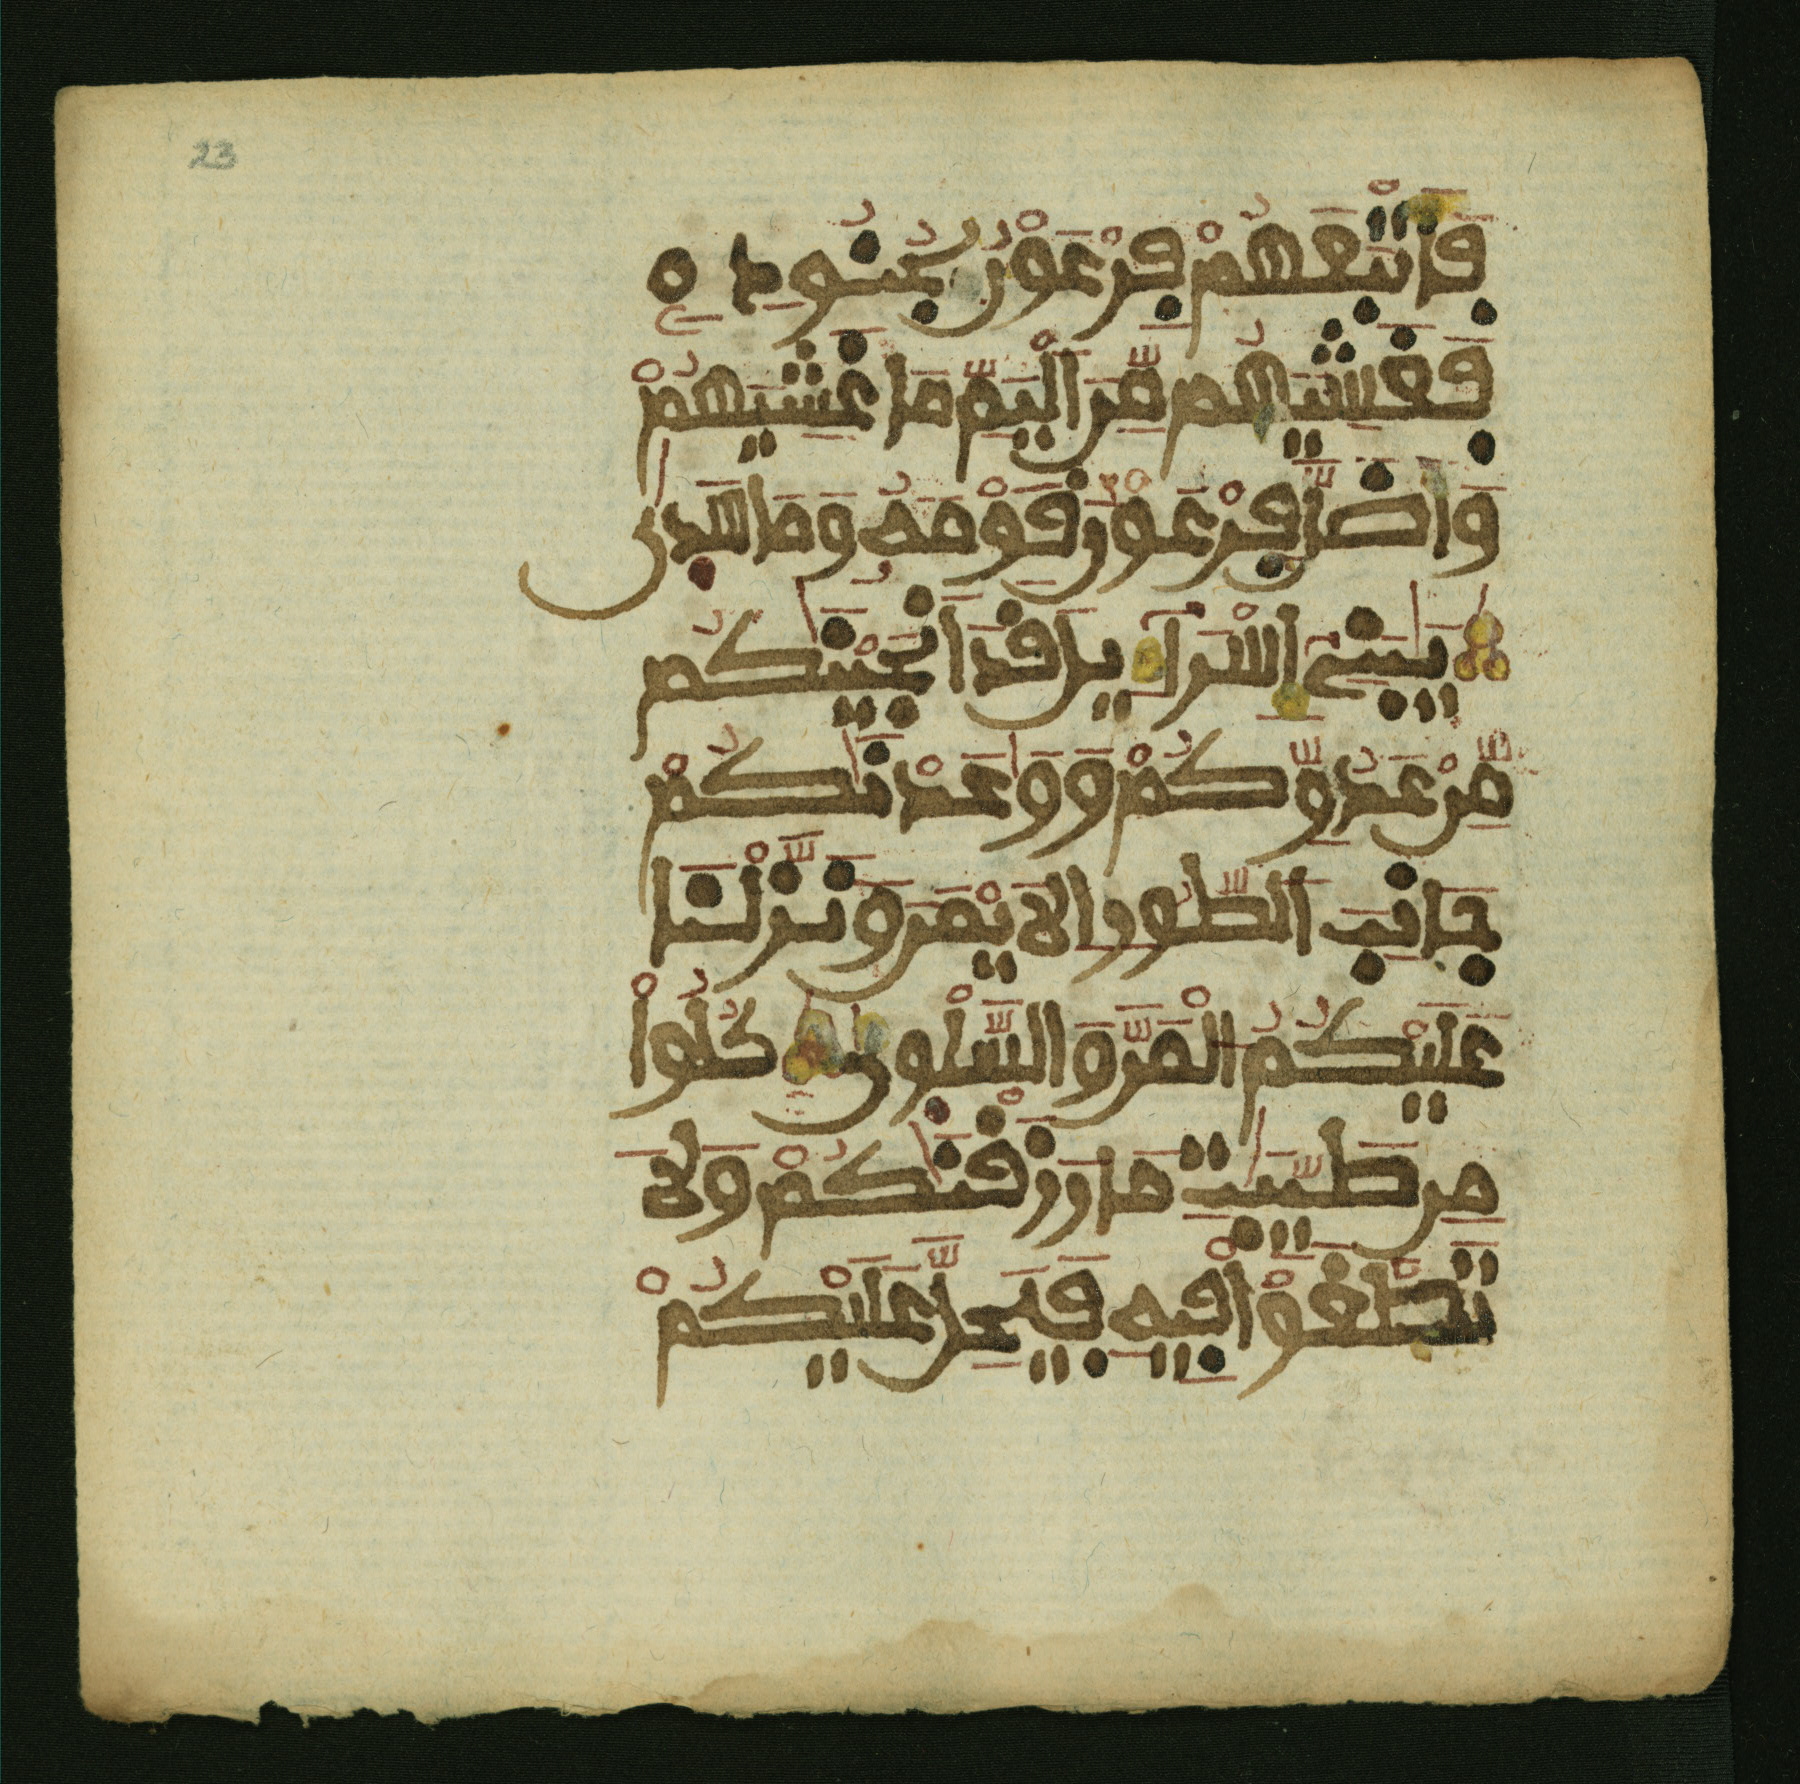 23
فَاتَّبَعَهُمْ فِرْعَوْنُ بِجُنُودِهِ
فَغَشِيَهُم مِّنَ الْيَمِّ مَا غَشِيَهُمْ
وَأَضَلَّ فِرْعَوْنُ قَوْمَهُ وَمَا هَدٜىٰ
يَٰبَنِي إِسْرَآءِيلَ قَدَ اَنجَيْنَٰكُم
مِّنْ عَدُوِّكُمْ وَوَٰعَدْنَٰكُمْ
جَانِبَ الطُّورِ الَايْمَنَ وَنَزَّلْنَا
عَلَيْكُمُ الْمَنَّ وَالسَّلْوٜىٰ كُلُواْ
مِن طَيِّبَٰتِ مَا رَزَقْنَٰكُمْ وَلَا
تَطْغَوْاْ فِيهِ فَيَحِلَّ عَلَيْكُمْ